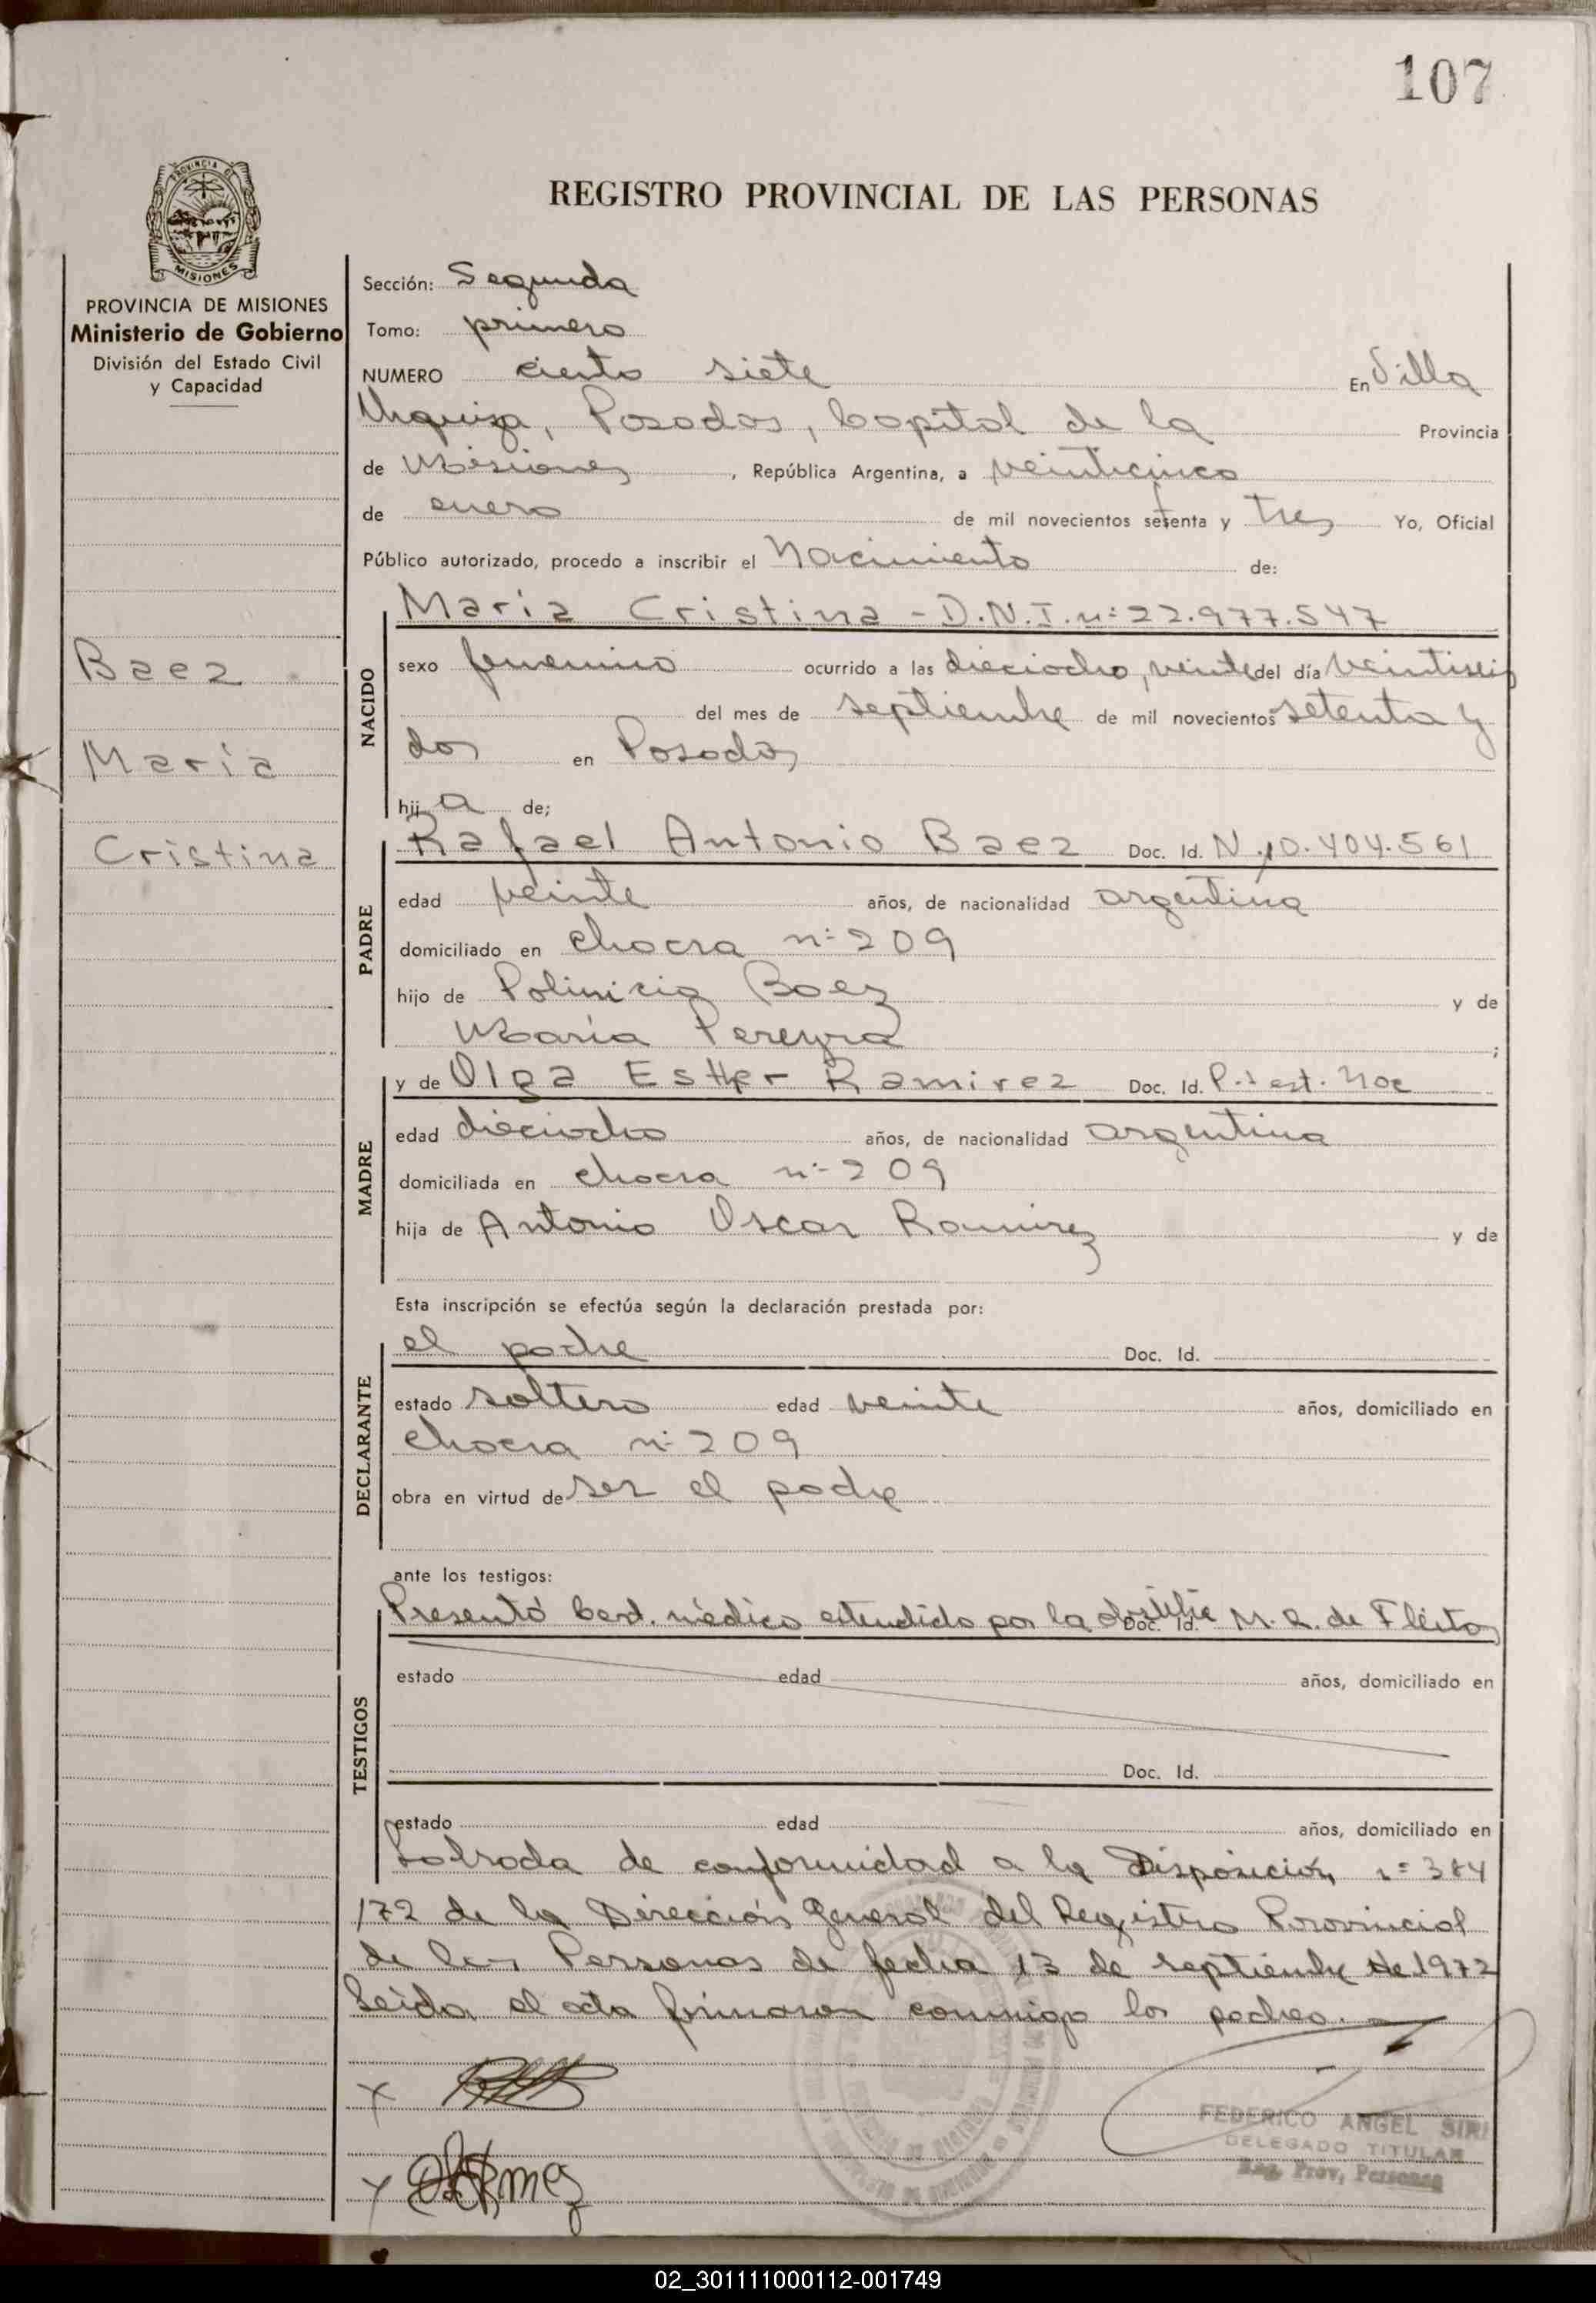 107
REGISTRO PROVINCIAL DE LAS PERSONAS
PROVINCIA DE
MISIONES
PROVINCIA DE MISIONES
Ministerio de Gobierno
División del Estado Civil
y Capacidad
Baez
María
Cristina
Sección: Segunda
Tomo: primero
NUMERO ciento siete En Villa
Urquiza, Posadas, Capital de la Provincia
de Misiones, República Argentina, a veinticinco
de enero de mil novecientos setenta y tres Yo, Oficial
Público autorizado, procedo a inscribir el Nacimiento de:
NACIDO
María Cristina - D.N.I. nº 22.977.547
sexo femenino ocurrido a las dieciocho, veinte del día veintiseis
del mes de septiembre de mil novecientos setenta y
dos en Posadas
hij a de;
PADRE
Rafael Antonio Baez Doc. Id. N. 10.404.561
edad veinte años, de nacionalidad argentina
domiciliado en chacra nº 209
hijo de Baez y de
María Pereyra ;
MADRE
y de Olga Esther Ramirez Doc. Id.
edad dieciocho años, de nacionalidad argentina
domiciliada en chacra nº 209
hija de Antonio Oscar Ramirez y de
Esta inscripción se efectúa según la declaración prestada por:
DECLARANTE
el padre Doc. Id.
estado soltero edad veinte años, domiciliado en
chacra nº 209
obra en virtud de ser el padre
ante los testigos:
TESTIGOS
Presentó Cert. médico extendido por la M. R. de Fleitas
Doc. Id.
estado edad años, domiciliado en
Doc. Id.
estado edad años, domiciliado en
Labrada de conformidad a la Disposición nº 384
/72 de la Dirección General del Registro Provincial
de las Personas de fecha 13 de septiembre de 1972
Leída el acta firmaron conmigo los padres.
FEDERICO ANGEL SIRI
DELEGADO TITULAR
Reg. Prov. Personas
02_301111000112-001749